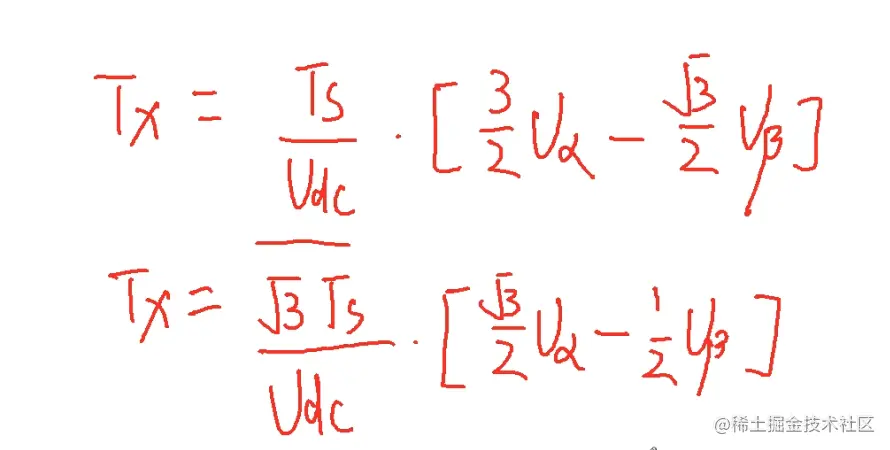 Tx = Ts/Udc · [3/2 Uα − √3/2 Uβ]
Tx = √3 Ts/Udc · [√3/2 Uα − 1/2 Uβ]
@稀土掘金技术社区